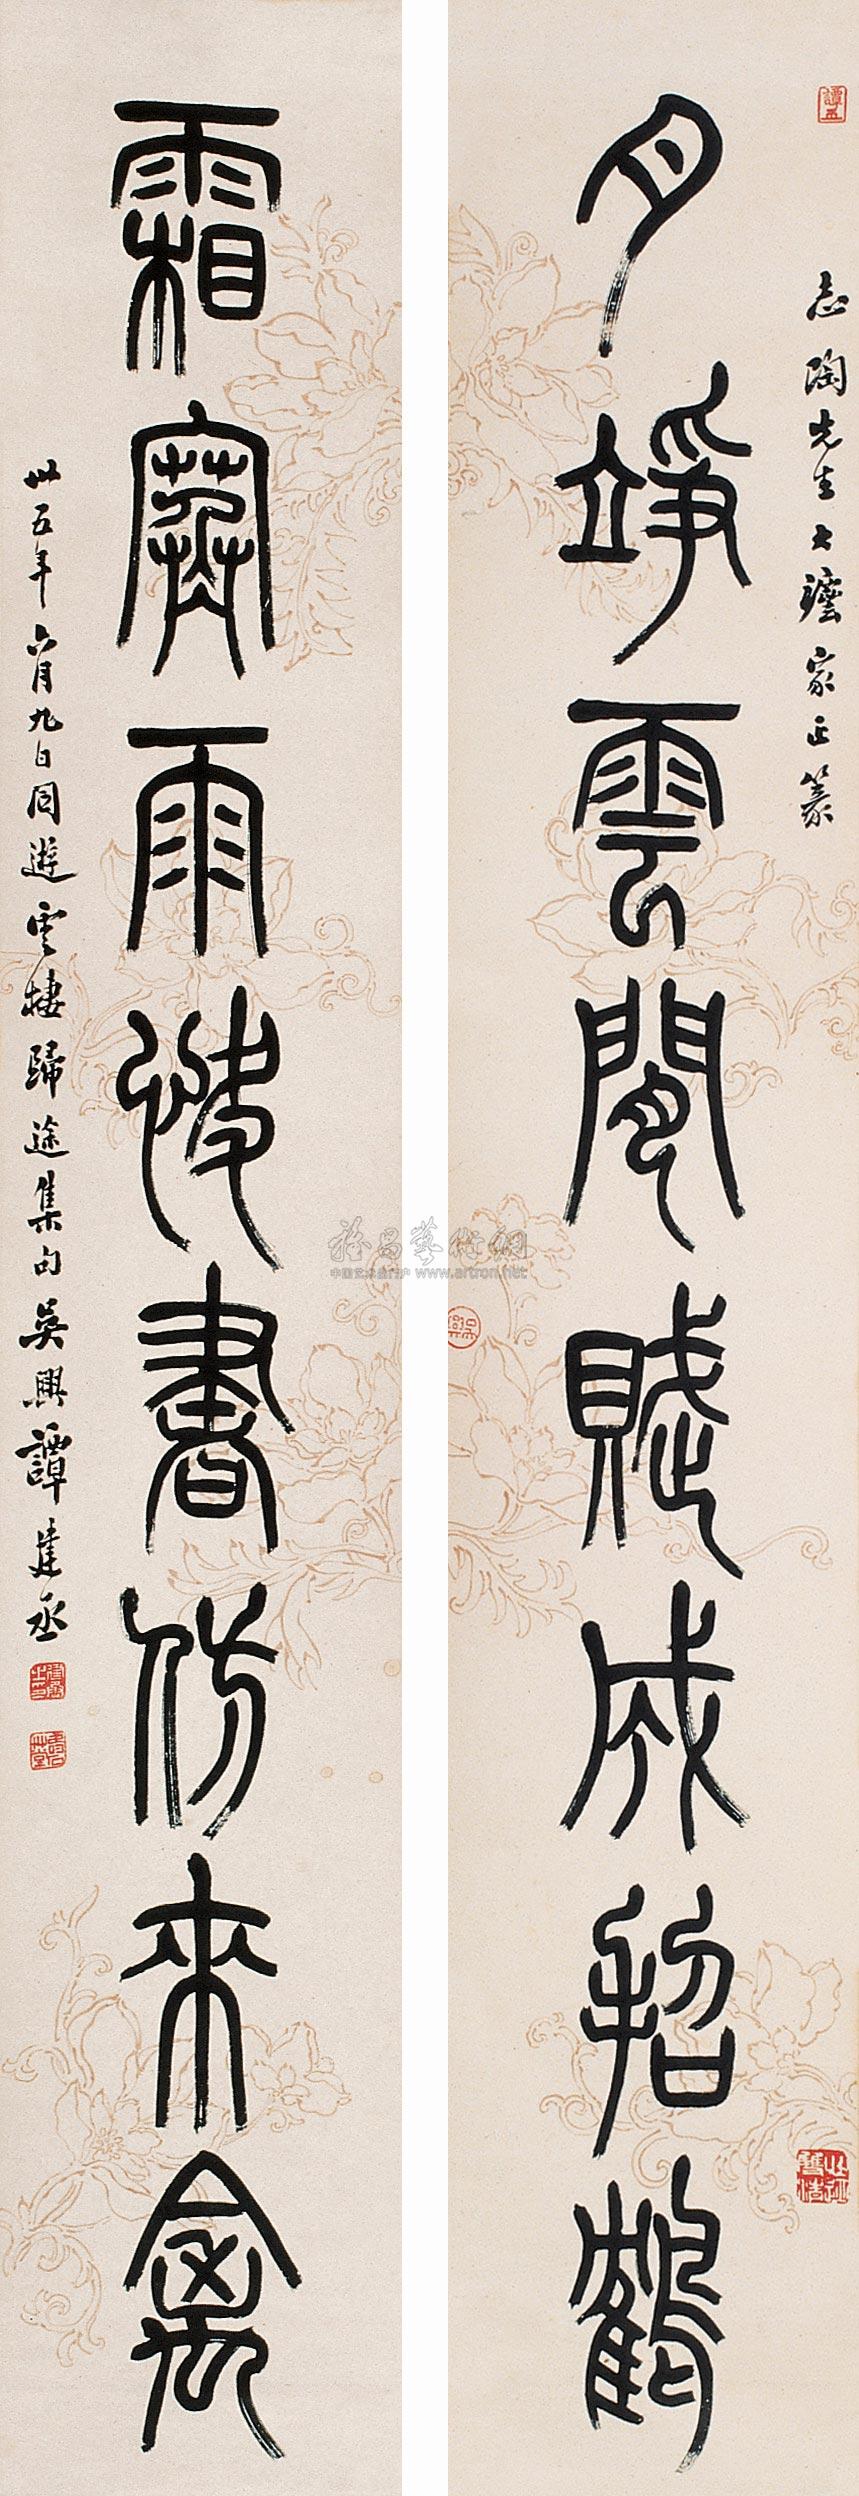 志陶先生大鑒家正篆
月竫雲閒賦成招鶴
霜寒雨快書仿來禽
卅五年六月九日同遊雲棲歸途集句吳興譚建丞
雅昌藝術網
www.artron.net